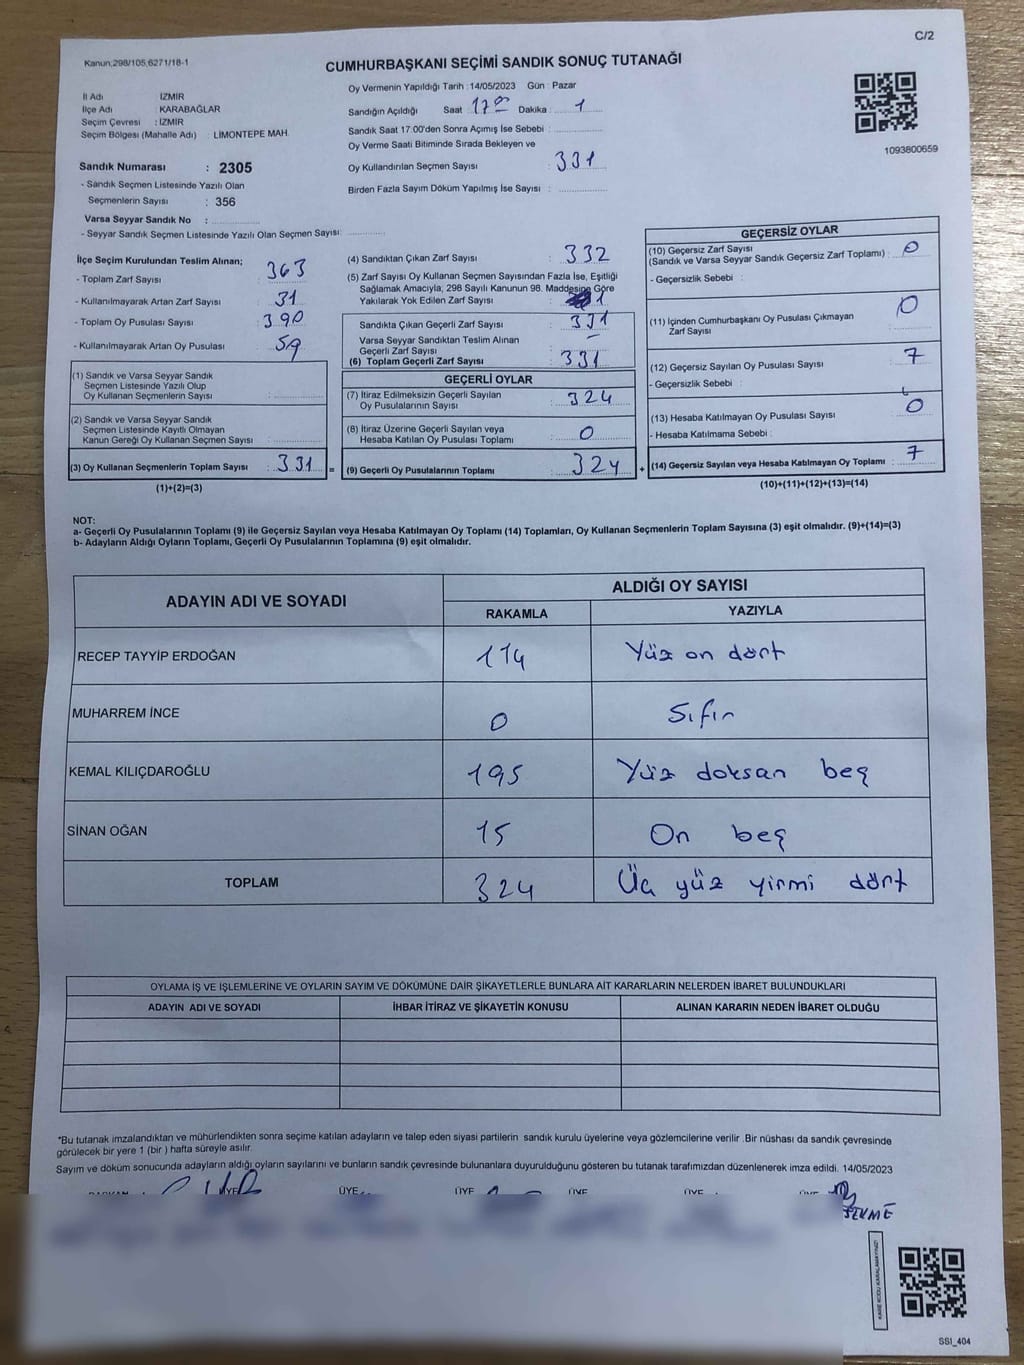 C/2
Kanun;298/105,6271/18-1
CUMHURBAŞKANI SEÇİMİ SANDIK SONUÇ TUTANAĞI
1093800659
İl Adı İZMİR
İlçe Adı KARABAĞLAR
Seçim Çevresi : İZMİR
Seçim Bölgesi (Mahalle Adı) : LİMONTEPE MAH.
Sandık Numarası : 2305
- Sandık Seçmen Listesinde Yazılı Olan
Seçmenlerin Sayısı : 356
Varsa Seyyar Sandık No :
- Seyyar Sandık Seçmen Listesinde Yazılı Olan Seçmen Sayısı:
Oy Vermenin Yapıldığı Tarih :14/05/2023 Gün : Pazar
Sandığın Açıldığı Saat 17.00 Dakika : 1
Sandık Saat 17.00'den Sonra Açımış İse Sebebi :
Oy Verme Saati Bitiminde Sırada Bekleyen ve
Oy Kullandırılan Seçmen Sayısı : 331
Birden Fazla Sayım Döküm Yapılmış İse Sayısı :
İlçe Seçim Kurulundan Teslim Alınan;
- Toplam Zarf Sayısı : 363
- Kullanılmayarak Artan Zarf Sayısı : 31
- Toplam Oy Pusulası Sayısı : 390
- Kullanılmayarak Artan Oy Pusulası : 59
(1) Sandık ve Varsa Seyyar Sandık
Seçmen Listesinde Yazılı Olup
Oy Kullanan Seçmenlerin Sayısı :
(2) Sandık ve Varsa Seyyar Sandık
Seçmen Listesinde Kayıtlı Olmayan
Kanun Gereği Oy Kullanan Seçmen Sayısı :
(3) Oy Kullanan Seçmenlerin Toplam Sayısı : 331 =
(1)+(2)=(3)
(4) Sandıktan Çıkan Zarf Sayısı : 332
(5) Zarf Sayısı Oy Kullanan Seçmen Sayısından Fazla İse, Eşitliği
Sağlamak Amacıyla; 298 Sayılı Kanunun 98. Maddesine Göre
Yakılarak Yok Edilen Zarf Sayısı : 1
Sandıkta Çıkan Geçerli Zarf Sayısı : 331
Varsa Seyyar Sandıktan Teslim Alınan
Geçerli Zarf Sayısı : -
(6) Toplam Geçerli Zarf Sayısı : 331
GEÇERLİ OYLAR
(7) İtiraz Edilmeksizin Geçerli Sayılan
Oy Pusulalarının Sayısı : 324
(8) İtiraz Üzerine Geçerli Sayılan veya
Hesaba Katılan Oy Pusulası Toplamı : 0
(9) Geçerli Oy Pusulalarının Toplamı : 324 +
GEÇERSİZ OYLAR
(10) Geçersiz Zarf Sayısı
(Sandık ve Varsa Seyyar Sandık Geçersiz Zarf Toplamı) : 0
- Geçersizlik Sebebi :
(11) İçinden Cumhurbaşkanı Oy Pusulası Çıkmayan
Zarf Sayısı : 0
(12) Geçersiz Sayılan Oy Pusulası Sayısı : 7
- Geçersizlik Sebebi :
(13) Hesaba Katılmayan Oy Pusulası Sayısı : 0
- Hesaba Katılmama Sebebi :
(14) Geçersiz Sayılan veya Hesaba Katılmayan Oy Toplamı : 7
(10)+(11)+(12)+(13)=(14)
NOT:
a- Geçerli Oy Pusulalarının Toplamı (9) ile Geçersiz Sayılan veya Hesaba Katılmayan Oy Toplamı (14) Toplamları, Oy Kullanan Seçmenlerin Toplam Sayısına (3) eşit olmalıdır. (9)+(14)=(3)
b- Adayların Aldığı Oyların Toplamı, Geçerli Oy Pusulalarının Toplamına (9) eşit olmalıdır.
ADAYIN ADI VE SOYADI ALDIĞI OY SAYISI
RAKAMLA YAZIYLA
RECEP TAYYİP ERDOĞAN 114 Yüz on dört
MUHARREM İNCE 0 Sıfır
KEMAL KILIÇDAROĞLU 195 Yüz doksan beş
SİNAN OĞAN 15 On beş
TOPLAM 324 Üç yüz yirmi dört
OYLAMA İŞ VE İŞLEMLERİNE VE OYLARIN SAYIM VE DÖKÜMÜNE DAİR ŞİKAYETLERLE BUNLARA AİT KARARLARIN NELERDEN İBARET BULUNDUKLARI
ADAYIN ADI VE SOYADI İHBAR İTİRAZ VE ŞİKAYETİN KONUSU ALINAN KARARIN NEDEN İBARET OLDUĞU
*Bu tutanak imzalandıktan ve mühürlendikten sonra seçime katılan adayların ve talep eden siyasi partilerin sandık kurulu üyelerine veya gözlemcilerine verilir .Bir nüshası da sandık çevresinde
görülecek bir yere 1 (bir ) hafta süreyle asılır.
Sayım ve döküm sonucunda adayların aldığı oyların sayılarını ve bunların sandık çevresinde bulunanlara duyurulduğunu gösteren bu tutanak tarafımızdan düzenlenerek imza edildi. 14/05/2023
ÜYE ÜYE ÜYE ÜYE ÜYE
SS1_404